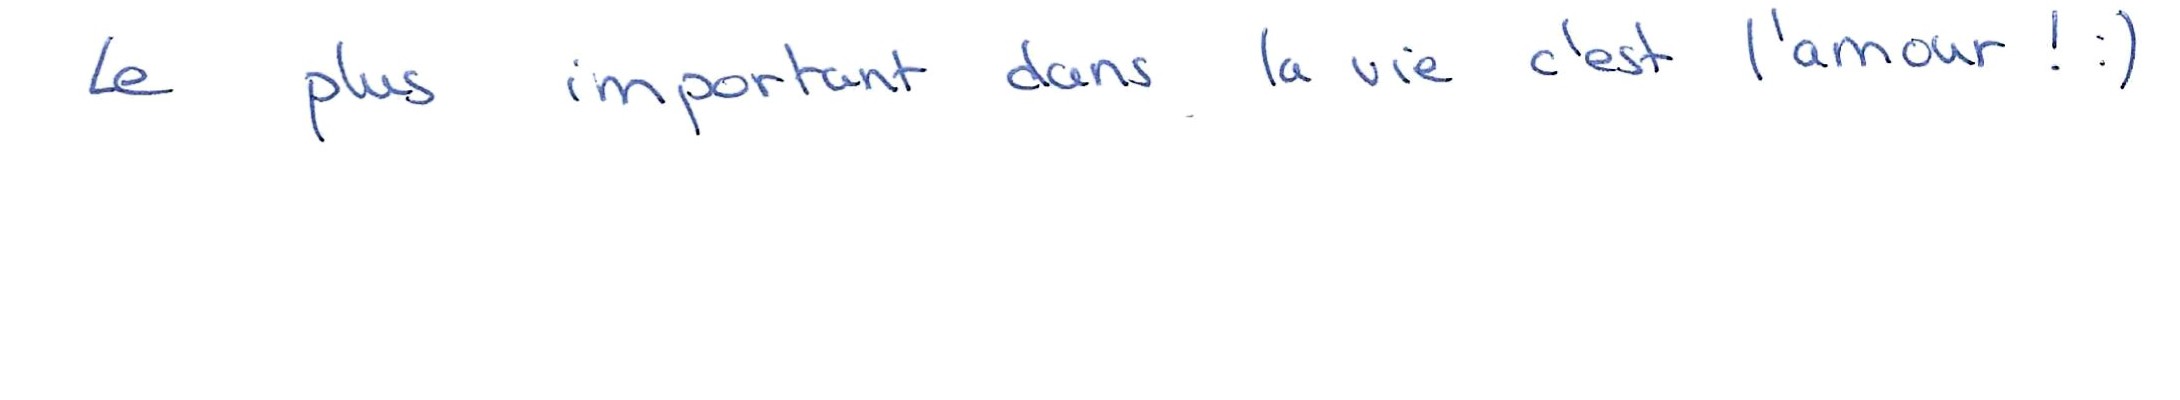 Le plus important dans la vie c'est l'amour ! :)